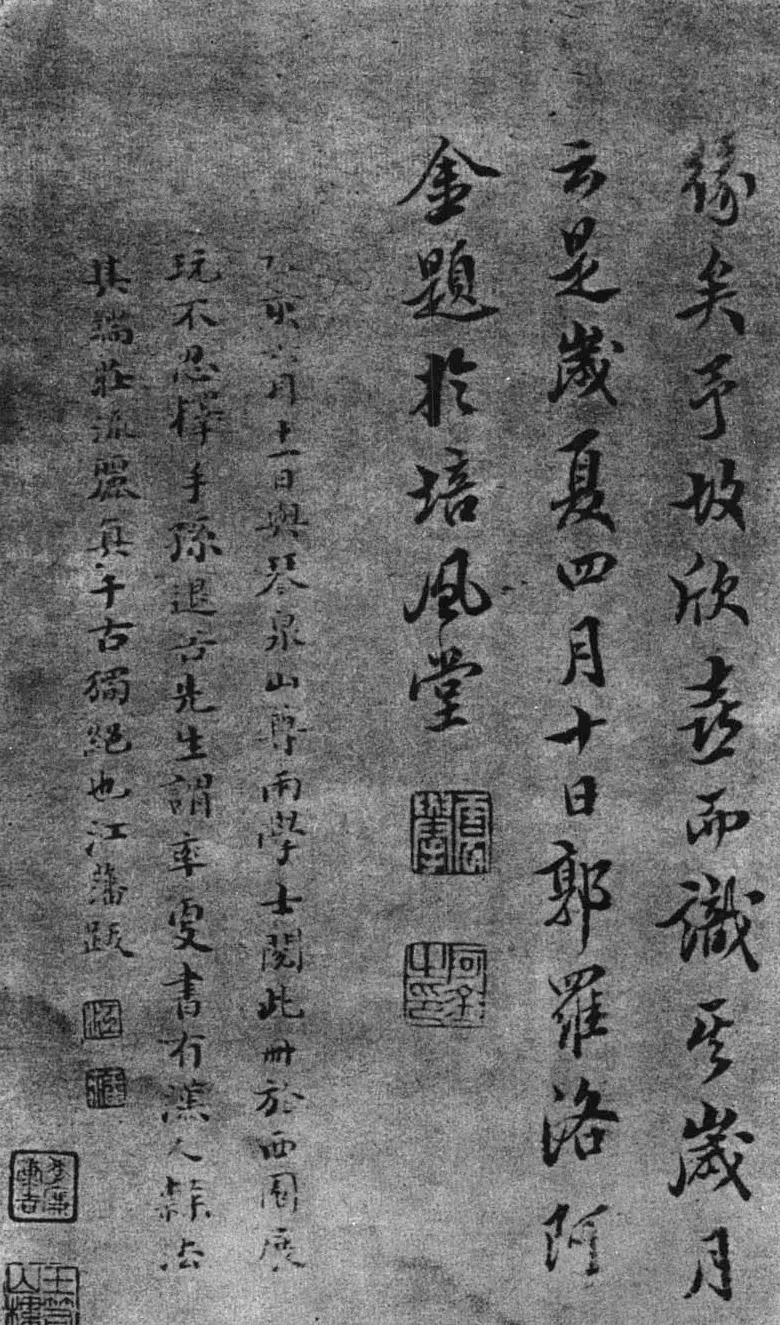 緣矣予故欣喜而識其歲月
云是歲夏四月十日郭羅洛阿
金題於培風堂
乙亥六月十一日與琴泉山尊兩學士閱此冊於西園展
玩不忍釋手孫退谷先生謂率更書有漢人隸法
其端莊流麗真千古獨絕也江藩跋